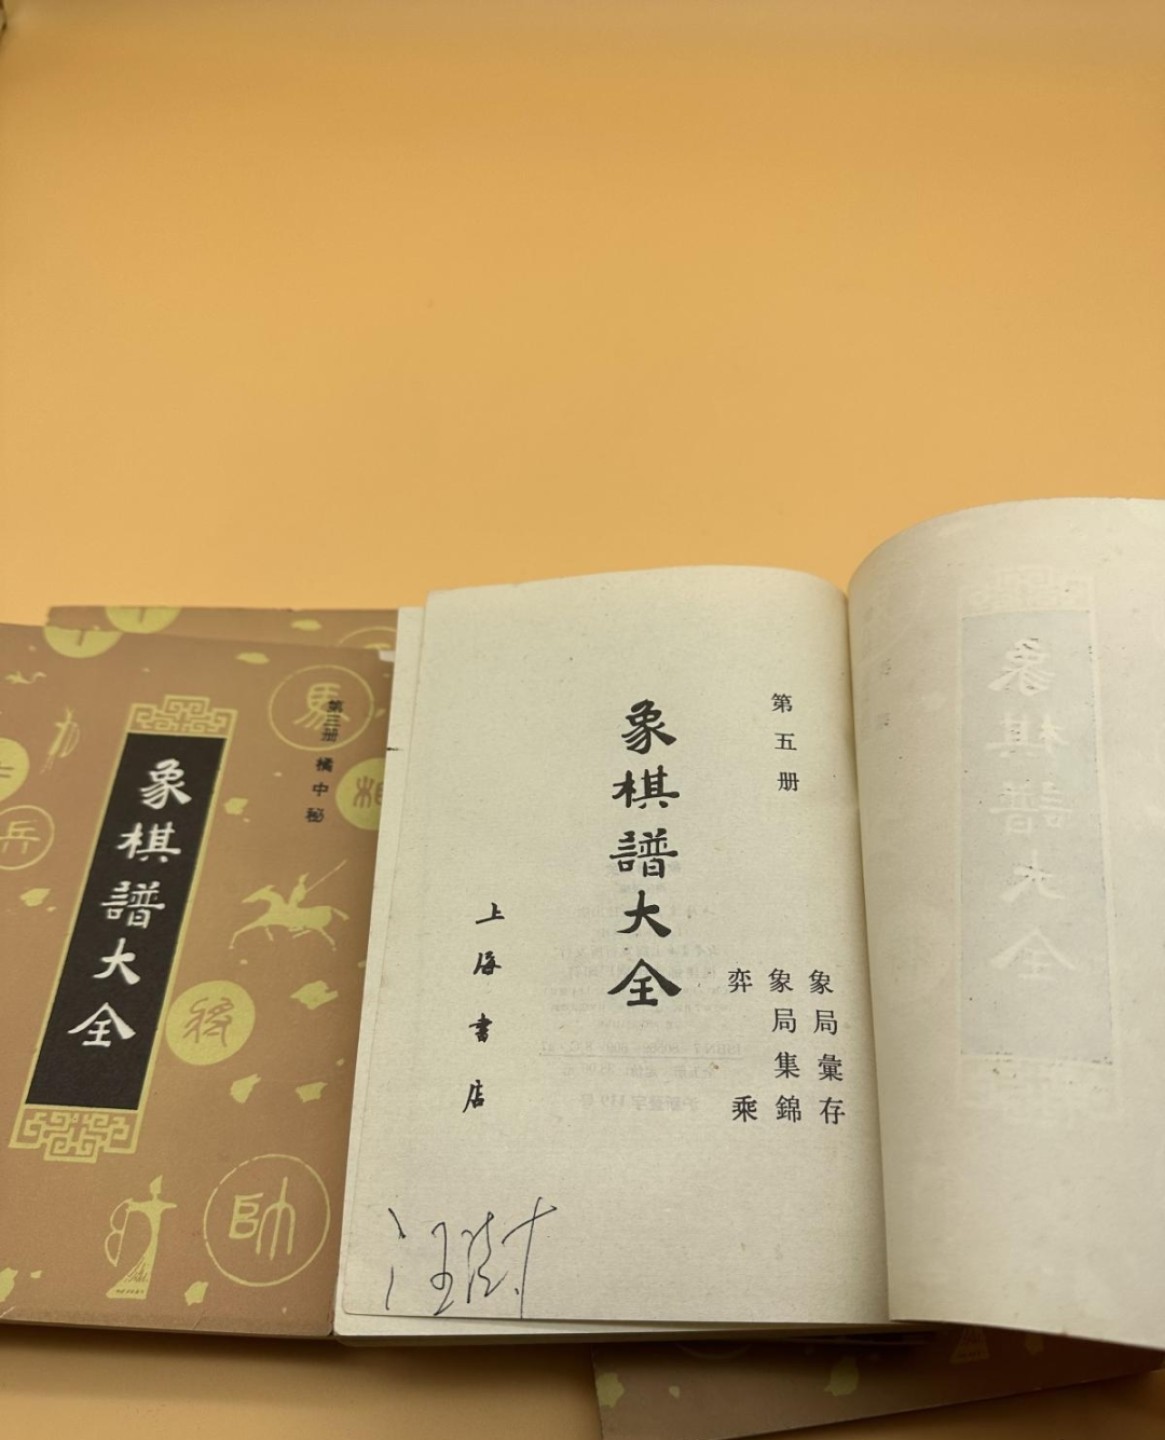 象棋譜大全
第三册 橘中秘
馬
相
兵
帥
第五册
象棋譜大全
象局彙存
象局集錦
弈乘
上海書店
象棋譜大全